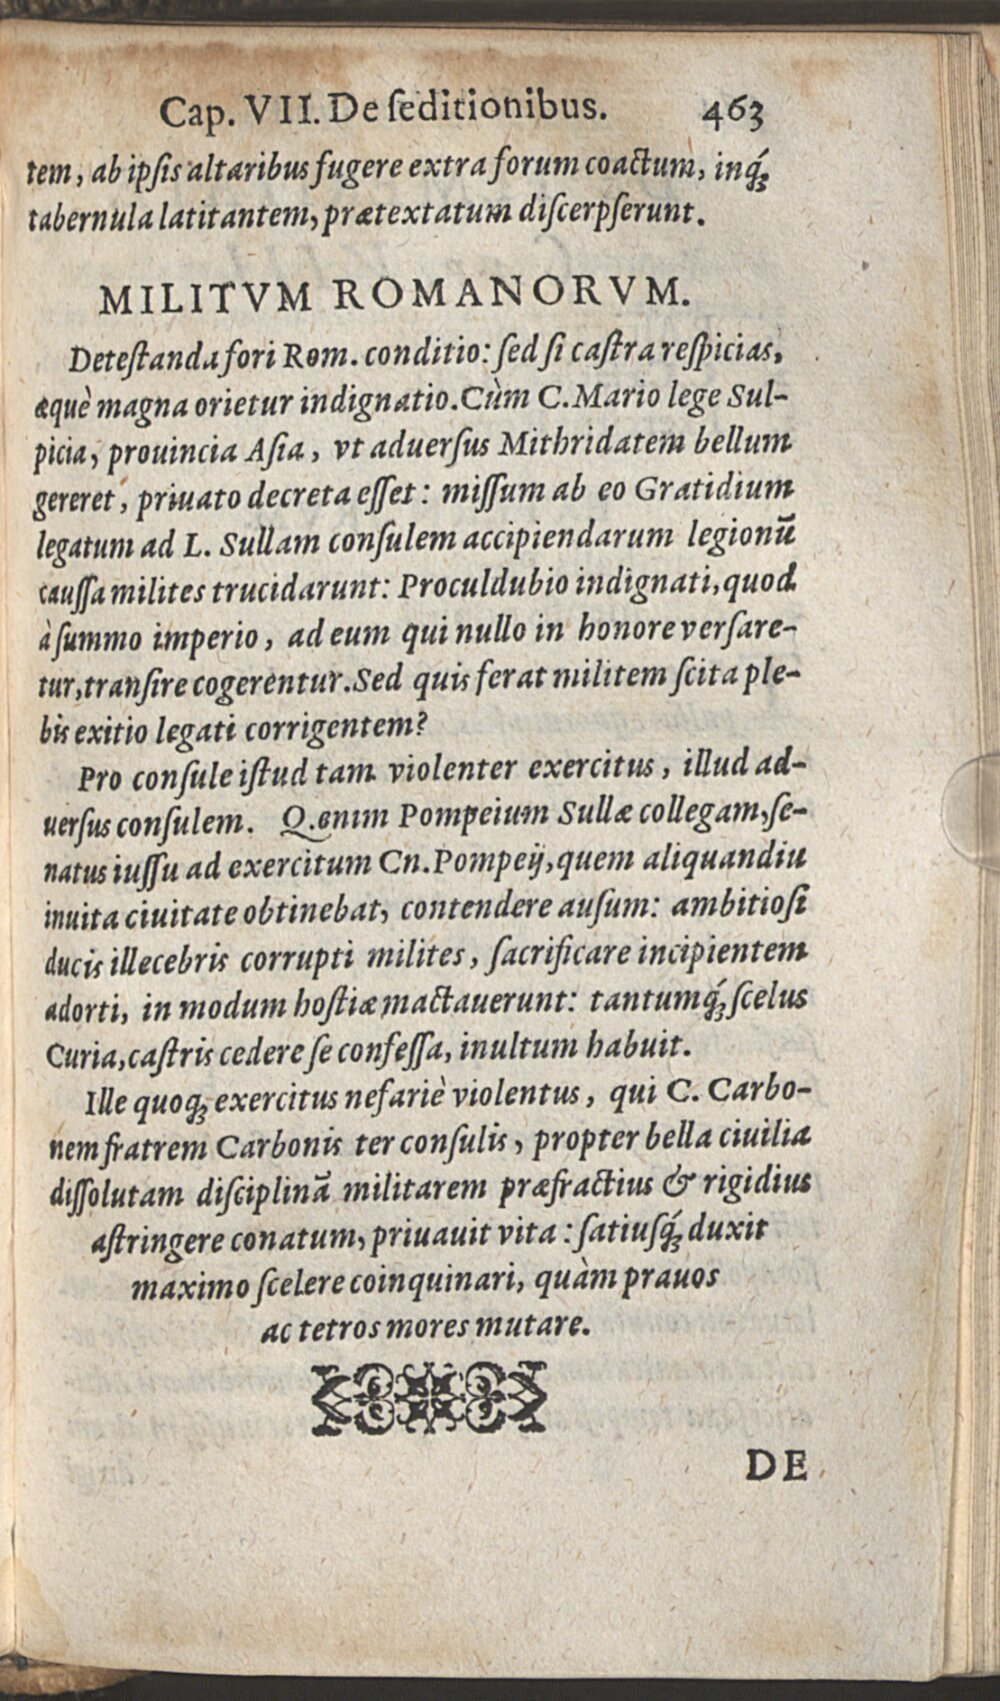 Cap. VII. De ſeditionibus. 463
tem, ab ipſis altaribus fugere extra forum coactum, inq́ꝫ
tabernula latitantem, prætextatum diſcerpſerunt.
MILITVM ROMANORVM.
Deteſtanda fori Rom. conditio: ſed ſi caſtra reſpicias,
æquè magna orietur indignatio. Cùm C. Mario lege Sul-
picia, prouincia Aſia, vt aduerſus Mithridatem bellum
gereret, priuato decreta eſſet: miſſum ab eo Gratidium
legatum ad L. Sullam conſulem accipiendarum legionũ
cauſſa milites trucidarunt: Proculdubio indignati, quod
à ſummo imperio, ad eum qui nullo in honore verſare-
tur, tranſire cogerentur. Sed quis ferat militem ſcita ple-
bis exitio legati corrigentem?
Pro conſule iſtud tam violenter exercitus, illud ad-
uerſus conſulem. Q. enim Pompeium Sullæ collegam, ſe-
natus iuſſu ad exercitum Cn. Pompeij, quem aliquandiu
inuita ciuitate obtinebat, contendere auſum: ambitioſi
ducis illecebris corrupti milites, ſacrificare incipientem
adorti, in modum hoſtiæ mactauerunt: tantumq́ꝫ ſcelus
Curia, caſtris cedere ſe confeſſa, inultum habuit.
Ille quoqꝫ exercitus nefariè violentus, qui C. Carbo-
nem fratrem Carbonis ter conſulis, propter bella ciuilia
diſſolutam diſciplinã militarem præfractius & rigidius
aſtringere conatum, priuauit vita: ſatiuſq́ꝫ duxit
maximo ſcelere coinquinari, quàm prauos
ac tetros mores mutare.
DE